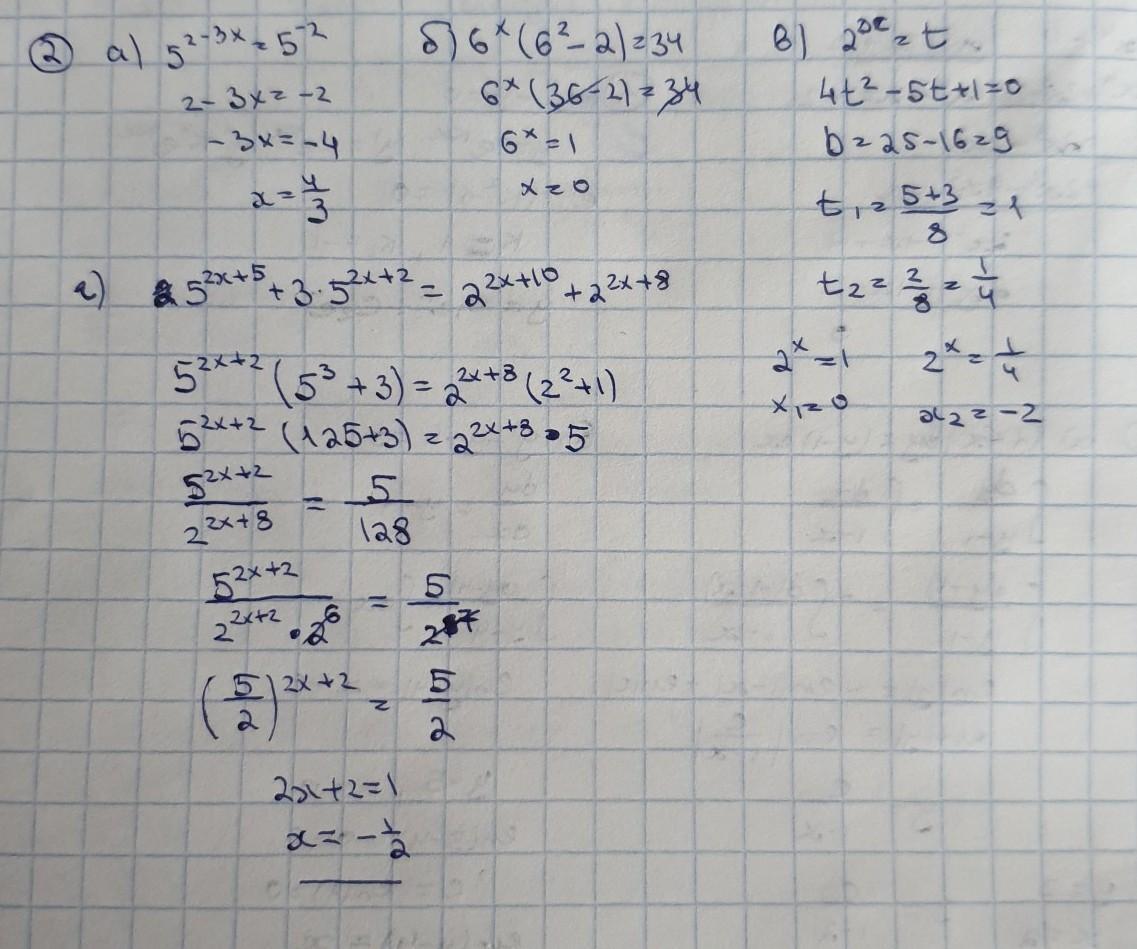 ② а) 5^{2-3x} = 5^{-2}
2 - 3x = -2
-3x = -4
x = 4/3
б) 6^x (6^2 - 2) = 34
6^x (36 - 2) = 34
6^x = 1
x = 0
в) 2^x = t
4t^2 - 5t + 1 = 0
D = 25 - 16 = 9
t_1 = (5+3)/8 = 1
t_2 = 2/8 = 1/4
2^x = 1   2^x = 1/4
x_1 = 0   x_2 = -2
г) 5^{2x+5} + 3 · 5^{2x+2} = 2^{2x+10} + 2^{2x+8}
5^{2x+2} (5^3 + 3) = 2^{2x+8} (2^2 + 1)
5^{2x+2} (125 + 3) = 2^{2x+8} · 5
5^{2x+2} / 2^{2x+8} = 5/128
5^{2x+2} / (2^{2x+2} · 2^6) = 5/2^7
(5/2)^{2x+2} = 5/2
2x + 2 = 1
x = -1/2